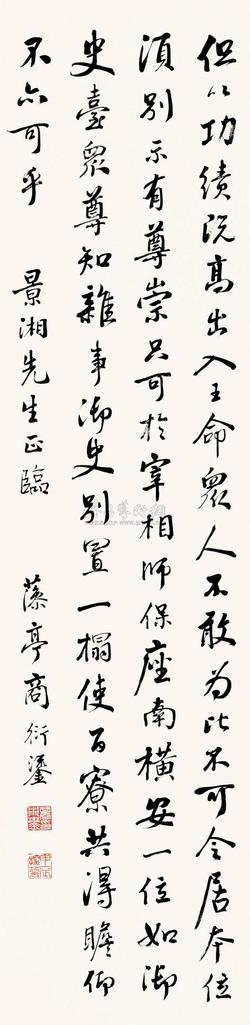 但以功績既高出入王命眾人不敢為比不可令居本位
須別示有尊崇只可於宰相師保座南橫安一位如御
史臺眾尊知雜事御史別置一榻使百寮共得瞻仰
不亦可乎
景湘先生正臨
藻亭商衍鎏